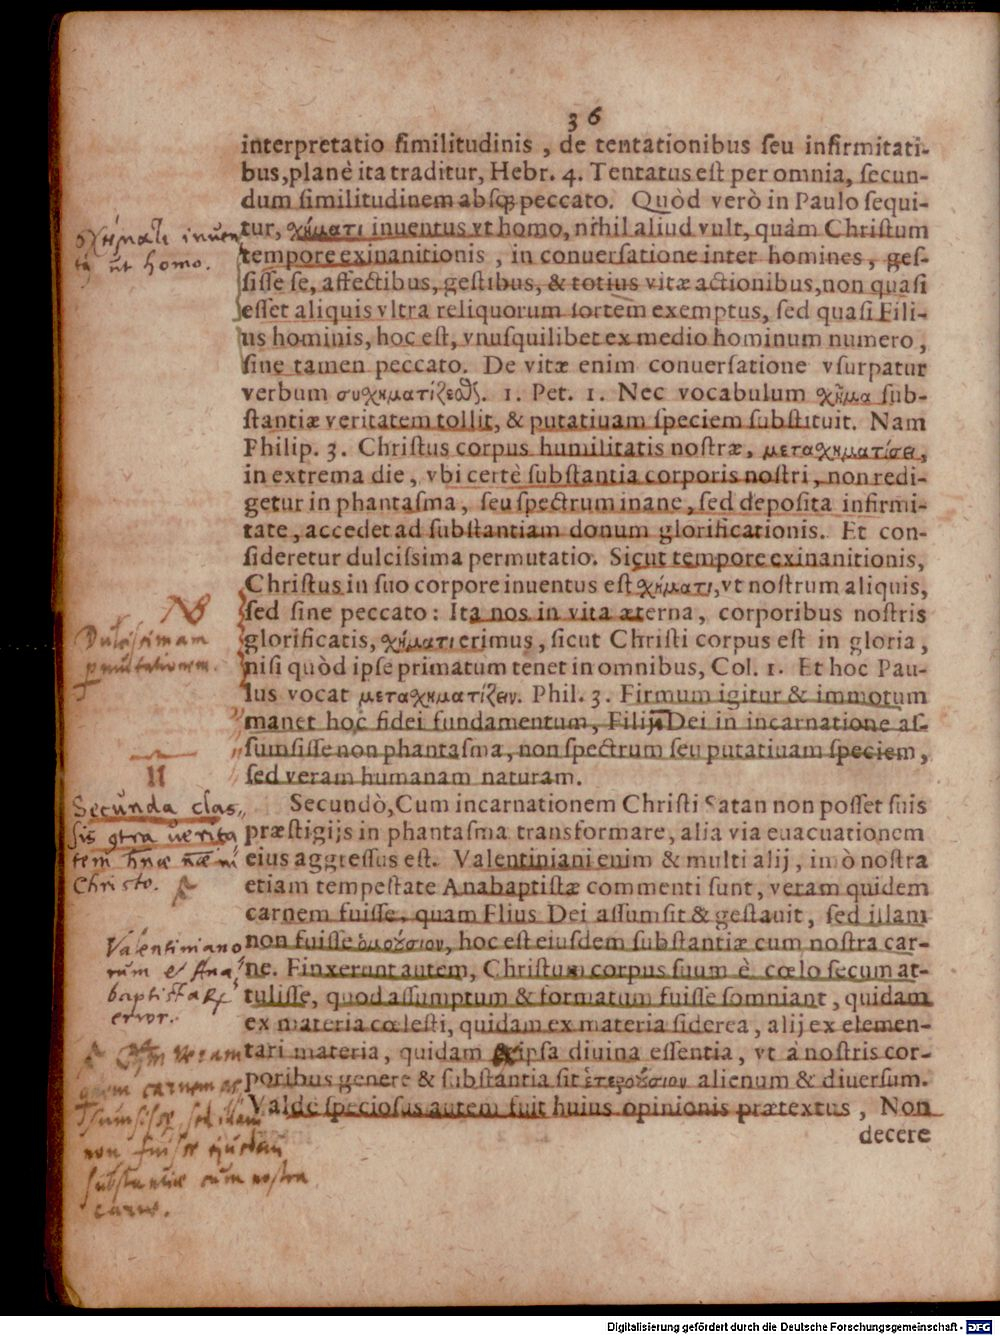 36
interpretatio ſimilitudinis , de tentationibus ſeu infirmitati-
bus, planè ita traditur, Hebr. 4. Tentatus eſt per omnia, ſecun-
dum ſimilitudinem abſq; peccato. Quòd verò in Paulo ſequi-
tur, σχήματι inuentus vt homo, nihil aliud vult, quàm Chriſtum
tempore exinanitionis , in conuerſatione inter homines, geſ-
ſiſſe ſe, affectibus, geſtibus, & totius vitæ actionibus, non quaſi
eſſet aliquis vltra reliquorum ſortem exemptus, ſed quaſi Fili-
us hominis, hoc eſt, vnuſquilibet ex medio hominum numero ,
ſine tamen peccato. De vitæ enim conuerſatione vſurpatur
verbum συσχηματίζεσθς. 1. Pet. 1. Nec vocabulum σχῆμα ſub-
ſtantiæ veritatem tollit, & putatiuam ſpeciem ſubſtituit. Nam
Philip. 3. Chriſtus corpus humilitatis noſtræ, μετασχηματίσει,
in extrema die, vbi certè ſubſtantia corporis noſtri, non redi-
getur in phantaſma, ſeu ſpectrum inane, ſed depoſita infirmi-
tate, accedet ad ſubſtantiam donum glorificationis. Et con-
ſideretur dulciſsima permutatio. Sicut tempore exinanitionis,
Chriſtus in ſuo corpore inuentus eſt σχήματι, vt noſtrum aliquis,
ſed ſine peccato: Ita nos in vita æterna, corporibus noſtris
glorificatis, σχήματι erimus, ſicut Chriſti corpus eſt in gloria,
niſi quòd ipſe primatum tenet in omnibus, Col. 1. Et hoc Pau-
lus vocat μετασχηματίζειν. Phil. 3. Firmum igitur & immotum
manet hoc fidei fundamentum, Filiū Dei in incarnatione aſ-
ſumſiſſe non phantaſma, non ſpectrum ſeu putatiuam ſpeciem,
ſed veram humanam naturam.
Secundò, Cum incarnationem Chriſti Satan non poſſet ſuis
præſtigijs in phantaſma transformare, alia via euacuationem
eius aggreſſus eſt. Valentiniani enim & multi alij, imò noſtra
etiam tempeſtate Anabaptiſtæ commenti ſunt, veram quidem
carnem fuiſſe, quam Flius Dei aſſumſit & geſtauit, ſed illam
non fuiſſe ὁμοούσιον, hoc eſt eiuſdem ſubſtantiæ cum noſtra car-
ne. Finxerunt autem, Chriſtum corpus ſuum è cœlo ſecum at-
tuliſſe, quod aſſumptum & formatum fuiſſe ſomniant, quidam
ex materia cœleſti, quidam ex materia ſiderea, alij ex elemen-
tari materia, quidam ex ipſa diuina eſſentia, vt à noſtris cor-
poribus genere & ſubſtantia ſit ἑτεροούσιον alienum & diuerſum.
Valde ſpecioſus autem fuit huius opinionis prætextus, Non
decere
σχήματι inven
tꝰ ut homo.
NB
Dulcissimam
permutationem.
II
Secunda clas
sis contra verita
tem hnae naen
Christo.
Valentiniano
rum & Ana
baptistarum
error.
veram
carnem as
sumsisse, sed illam
non fuisse ejusdem
substantiæ cum nostra
carne.
Digitalisierung gefördert durch die Deutsche Forschungsgemeinschaft - DFG